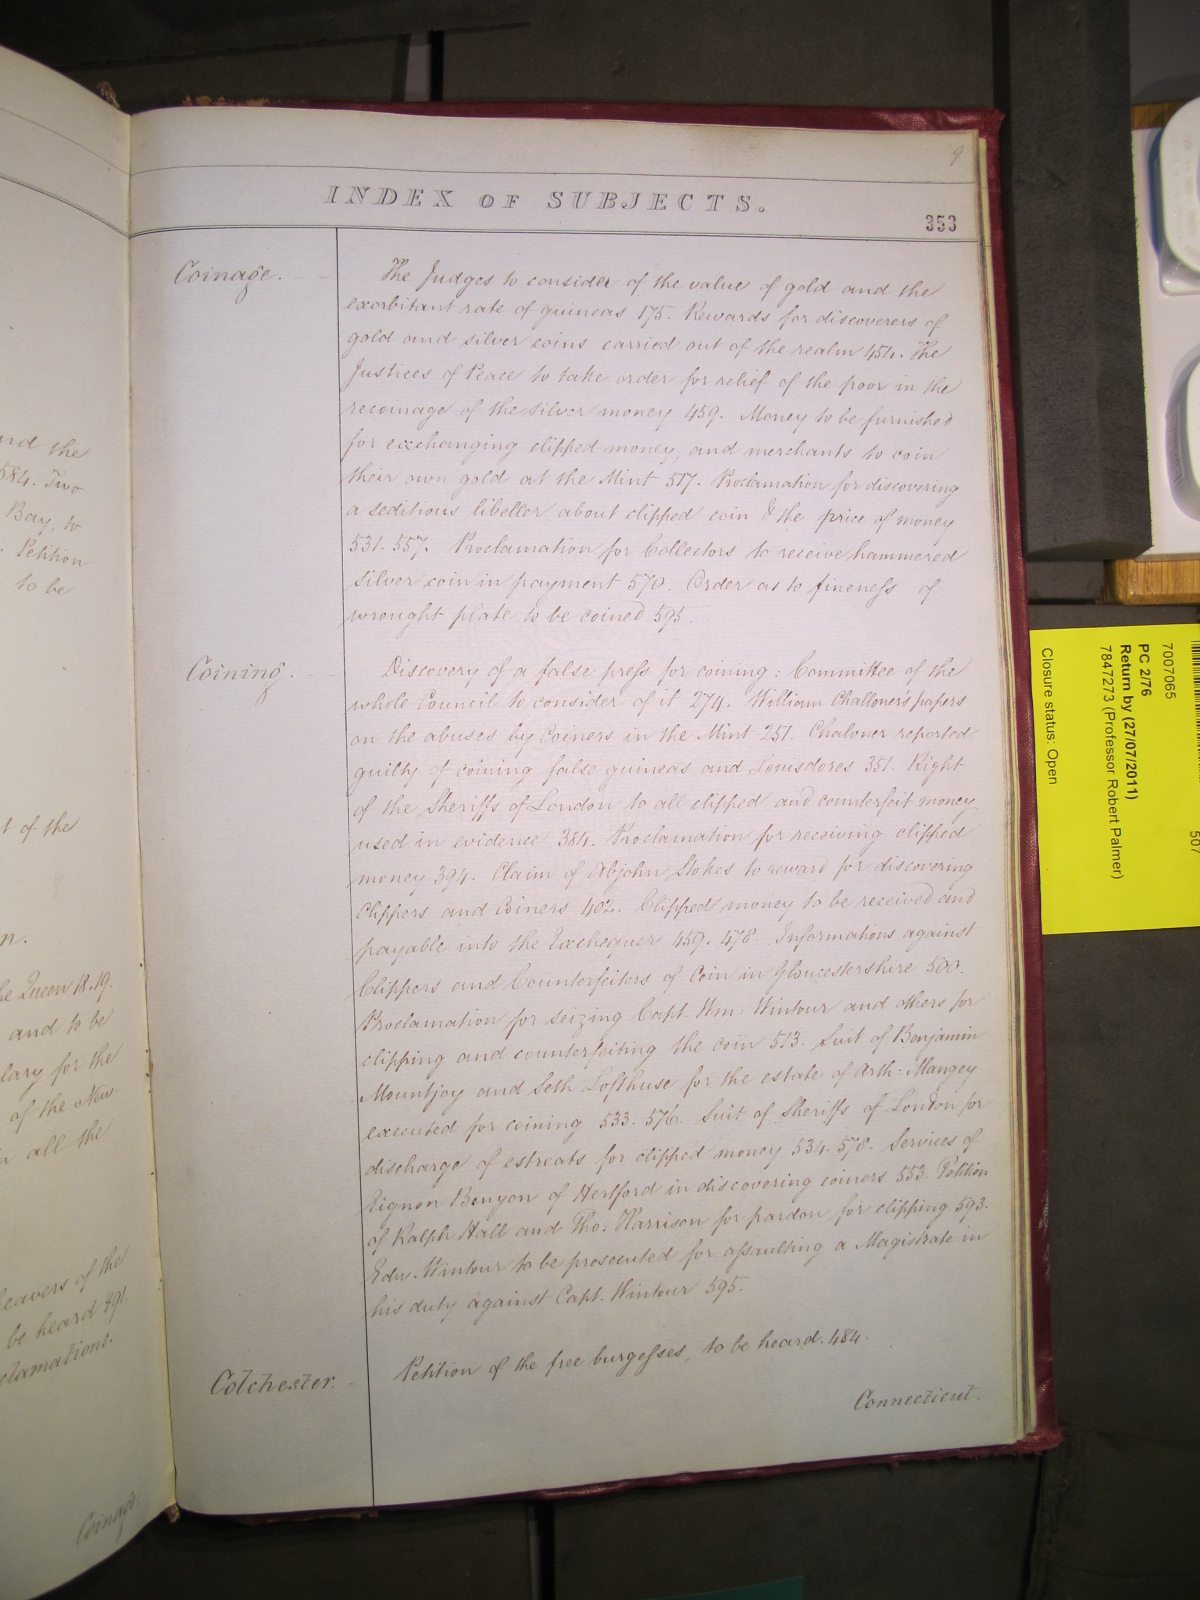 9
INDEX OF SUBJECTS.
353
Coinage.
The Judges to consider of the value of gold and the
exorbitant rate of guineas 175. Rewards for discoverers of
gold and silver coins carried out of the realm 454. The
Justices of Peace to take order for relief of the poor in the
recoinage of the silver money 459. Money to be furnished
for exchanging clipped money, and merchants to coin
their own gold at the Mint 517. Proclamation for discovering
a seditious libeller about clipped coin & the price of money
531. 557. Proclamation for Collectors to receive hammered
silver coin in payment 570. Order as to fineness of
wrought plate to be coined 595.
Coining.
Discovery of a false press for coining: Committee of the
whole Council to consider of it 274. William Challoner's papers
on the abuses by Coiners in the Mint 251. Chaloner reported
guilty of coining false guineas and Louisdores 351. Right
of the Sheriffs of London to all clipped and counterfeit money
used in evidence 384. Proclamation for receiving clipped
money 394. Claim of Abjohn Stokes to reward for discovering
Clippers and Coiners 402. Clipped money to be received and
payable into the Exchequer 459. 478. Informations against
Clippers and Counterfeiters of Coin in Gloucestershire 500.
Proclamation for seizing Capt. Wm. Wintour and others for
clipping and counterfeiting the coin 513. Suit of Benjamin
Mountjoy and Seth Lofthuse for the estate of Arth: Mangey
executed for coining 533. 576. Suit of Sheriffs of London for
discharge of estreats for clipped money 534. 578. Services of
Eignon Benyon of Hertford in discovering coiners 553. Petition
of Ralph Hall and Tho: Harrison for pardon for clipping 593.
Edw. Wintour to be prosecuted for assaulting a Magistrate in
his duty against Capt. Wintour 595.
Colchester.
Petition of the free burgesses, to be heard. 484.
Connecticut.
and the
584. Two
Bay, to
Petition
to be
t of the
n.
he Queen 18.19.
and to be
lary for the
of the New
all the
eavers of the
be heard 491.
clamations.
Coinage.
507
7007065
PC 2/76
Return by (27/07/2011)
7847273 (Professor Robert Palmer)
Closure status: Open